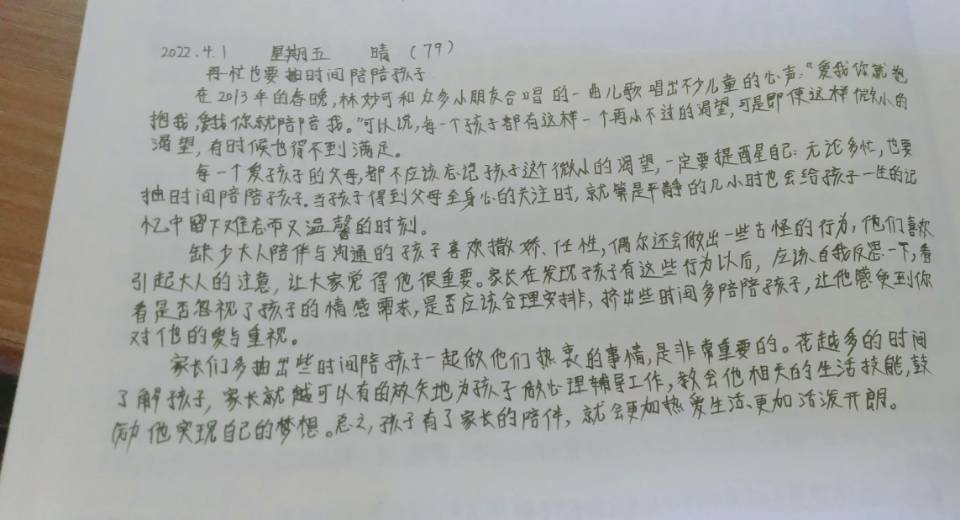 2022.4.1 星期五 晴 (79)
再忙也要抽时间陪陪孩子
在2013年的春晚,林妙可和众多小朋友合唱的一曲儿歌唱出不少儿童的心声:“爱我你就抱
抱我,爱我你就陪陪我。”可以说,每一个孩子都有这样一个再小不过的渴望,可是即使这样微小的
渴望,有时候也得不到满足。
每一个爱孩子的父母,都不应该忘记孩子这个微小的渴望,一定要提醒自己:无论多忙,也要
抽时间陪陪孩子。当孩子得到父母全身心的关注时,就算是平静的几小时也会给孩子一生的记
忆中留下难忘而又温馨的时刻。
缺少大人陪伴与沟通的孩子喜欢撒娇、任性,偶尔还会做出一些古怪的行为,他们喜欢
引起大人的注意,让大家觉得他很重要。家长在发现孩子有这些行为以后,应该自我反思一下,看
看是否忽视了孩子的情感需求,是否应该合理安排,挤出些时间多陪陪孩子,让他感受到你
对他的爱与重视。
家长们多抽出些时间陪孩子一起做他们热衷的事情,是非常重要的。花越多的时间
了解孩子,家长就越可以有的放矢地为孩子做心理辅导工作,教会他相关的生活技能,鼓
励他实现自己的梦想。总之,孩子有了家长的陪伴,就会更加热爱生活、更加活泼开朗。